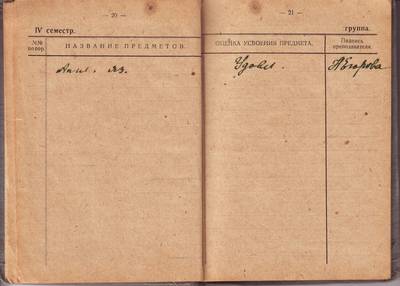 — 20 —
IV семестр.
№№ по пор.
НАЗВАНИЕ ПРЕДМЕТОВ.
Англ. яз.
— 21 —
группа.
ОЦЕНКА УСВОЕНИЯ ПРЕДМЕТА.
Подпись
преподавателя.
Удовл.
НЕгорова